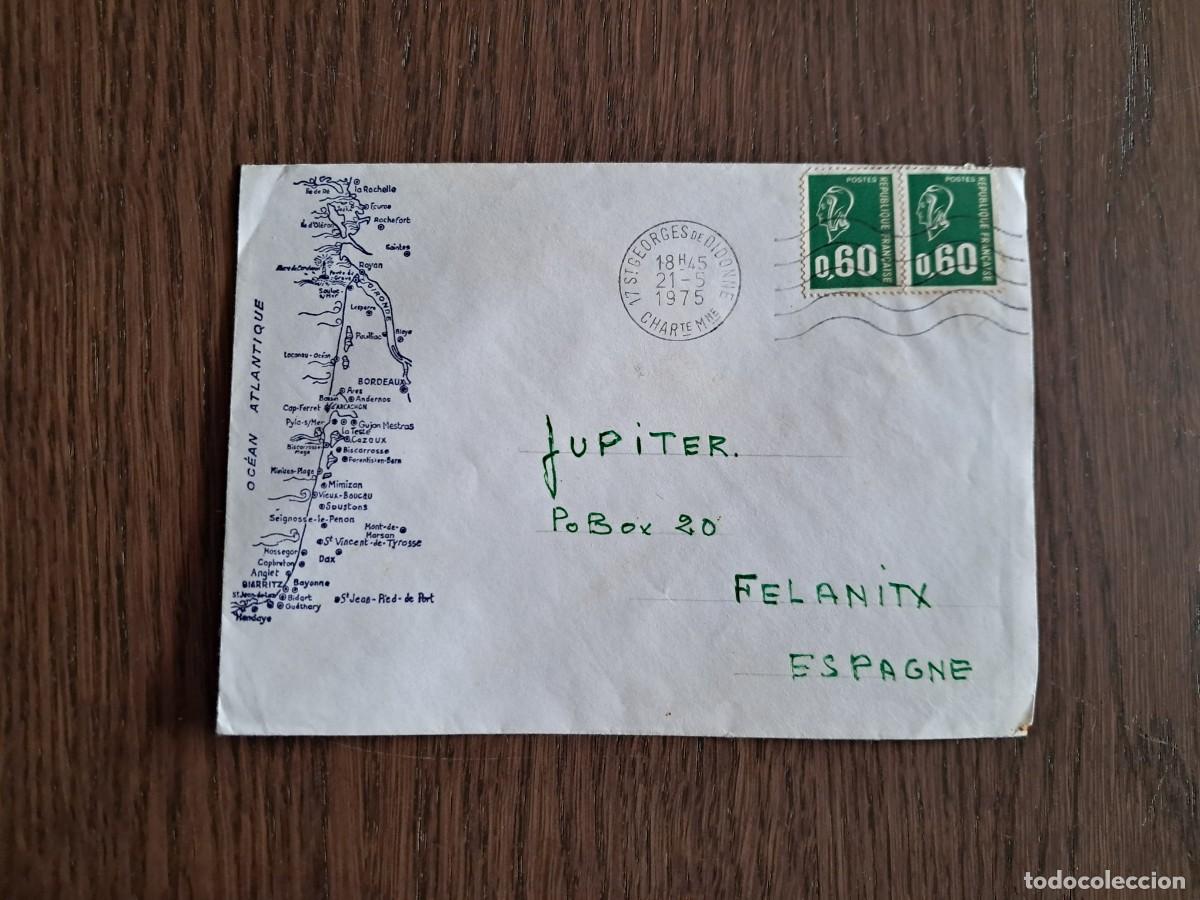 île de Ré
la Rochelle
Fouras
île d'Oléron
Rochefort
Saintes
Royan
Pointe de Grave
GIRONDE
Soulac s/Mer
Lesparre
Pauillac
Blaye
Lacanau-Océan
OCÉAN ATLANTIQUE
BORDEAUX
Arès
Bassin
Andernos
Cap-Ferret
d'ARCACHON
Pyla-s/Mer
Gujan Mestras
La Teste
Cazaux
Biscarrosse Plage
Biscarrosse
Parentis-en-Born
Mimizan-Plage
Mimizan
Vieux-Boucau
Soustons
Seignosse-le-Penon
Mont-de-Marsan
St Vincent-de-Tyrosse
Hossegor
Dax
Capbreton
Anglet
BIARRITZ
Bayonne
St Jean-de-Luz
Bidart
St Jean-Pied-de Port
Guéthary
Hendaye
17 ST GEORGES DE DIDONNE
18H45
21-5
1975
CHARTE MME
POSTES
REPUBLIQUE FRANÇAISE
0,60
POSTES
REPUBLIQUE FRANÇAISE
0,60
JUPITER.
PO Box 20
FELANITX
ESPAGNE
todocoleccion